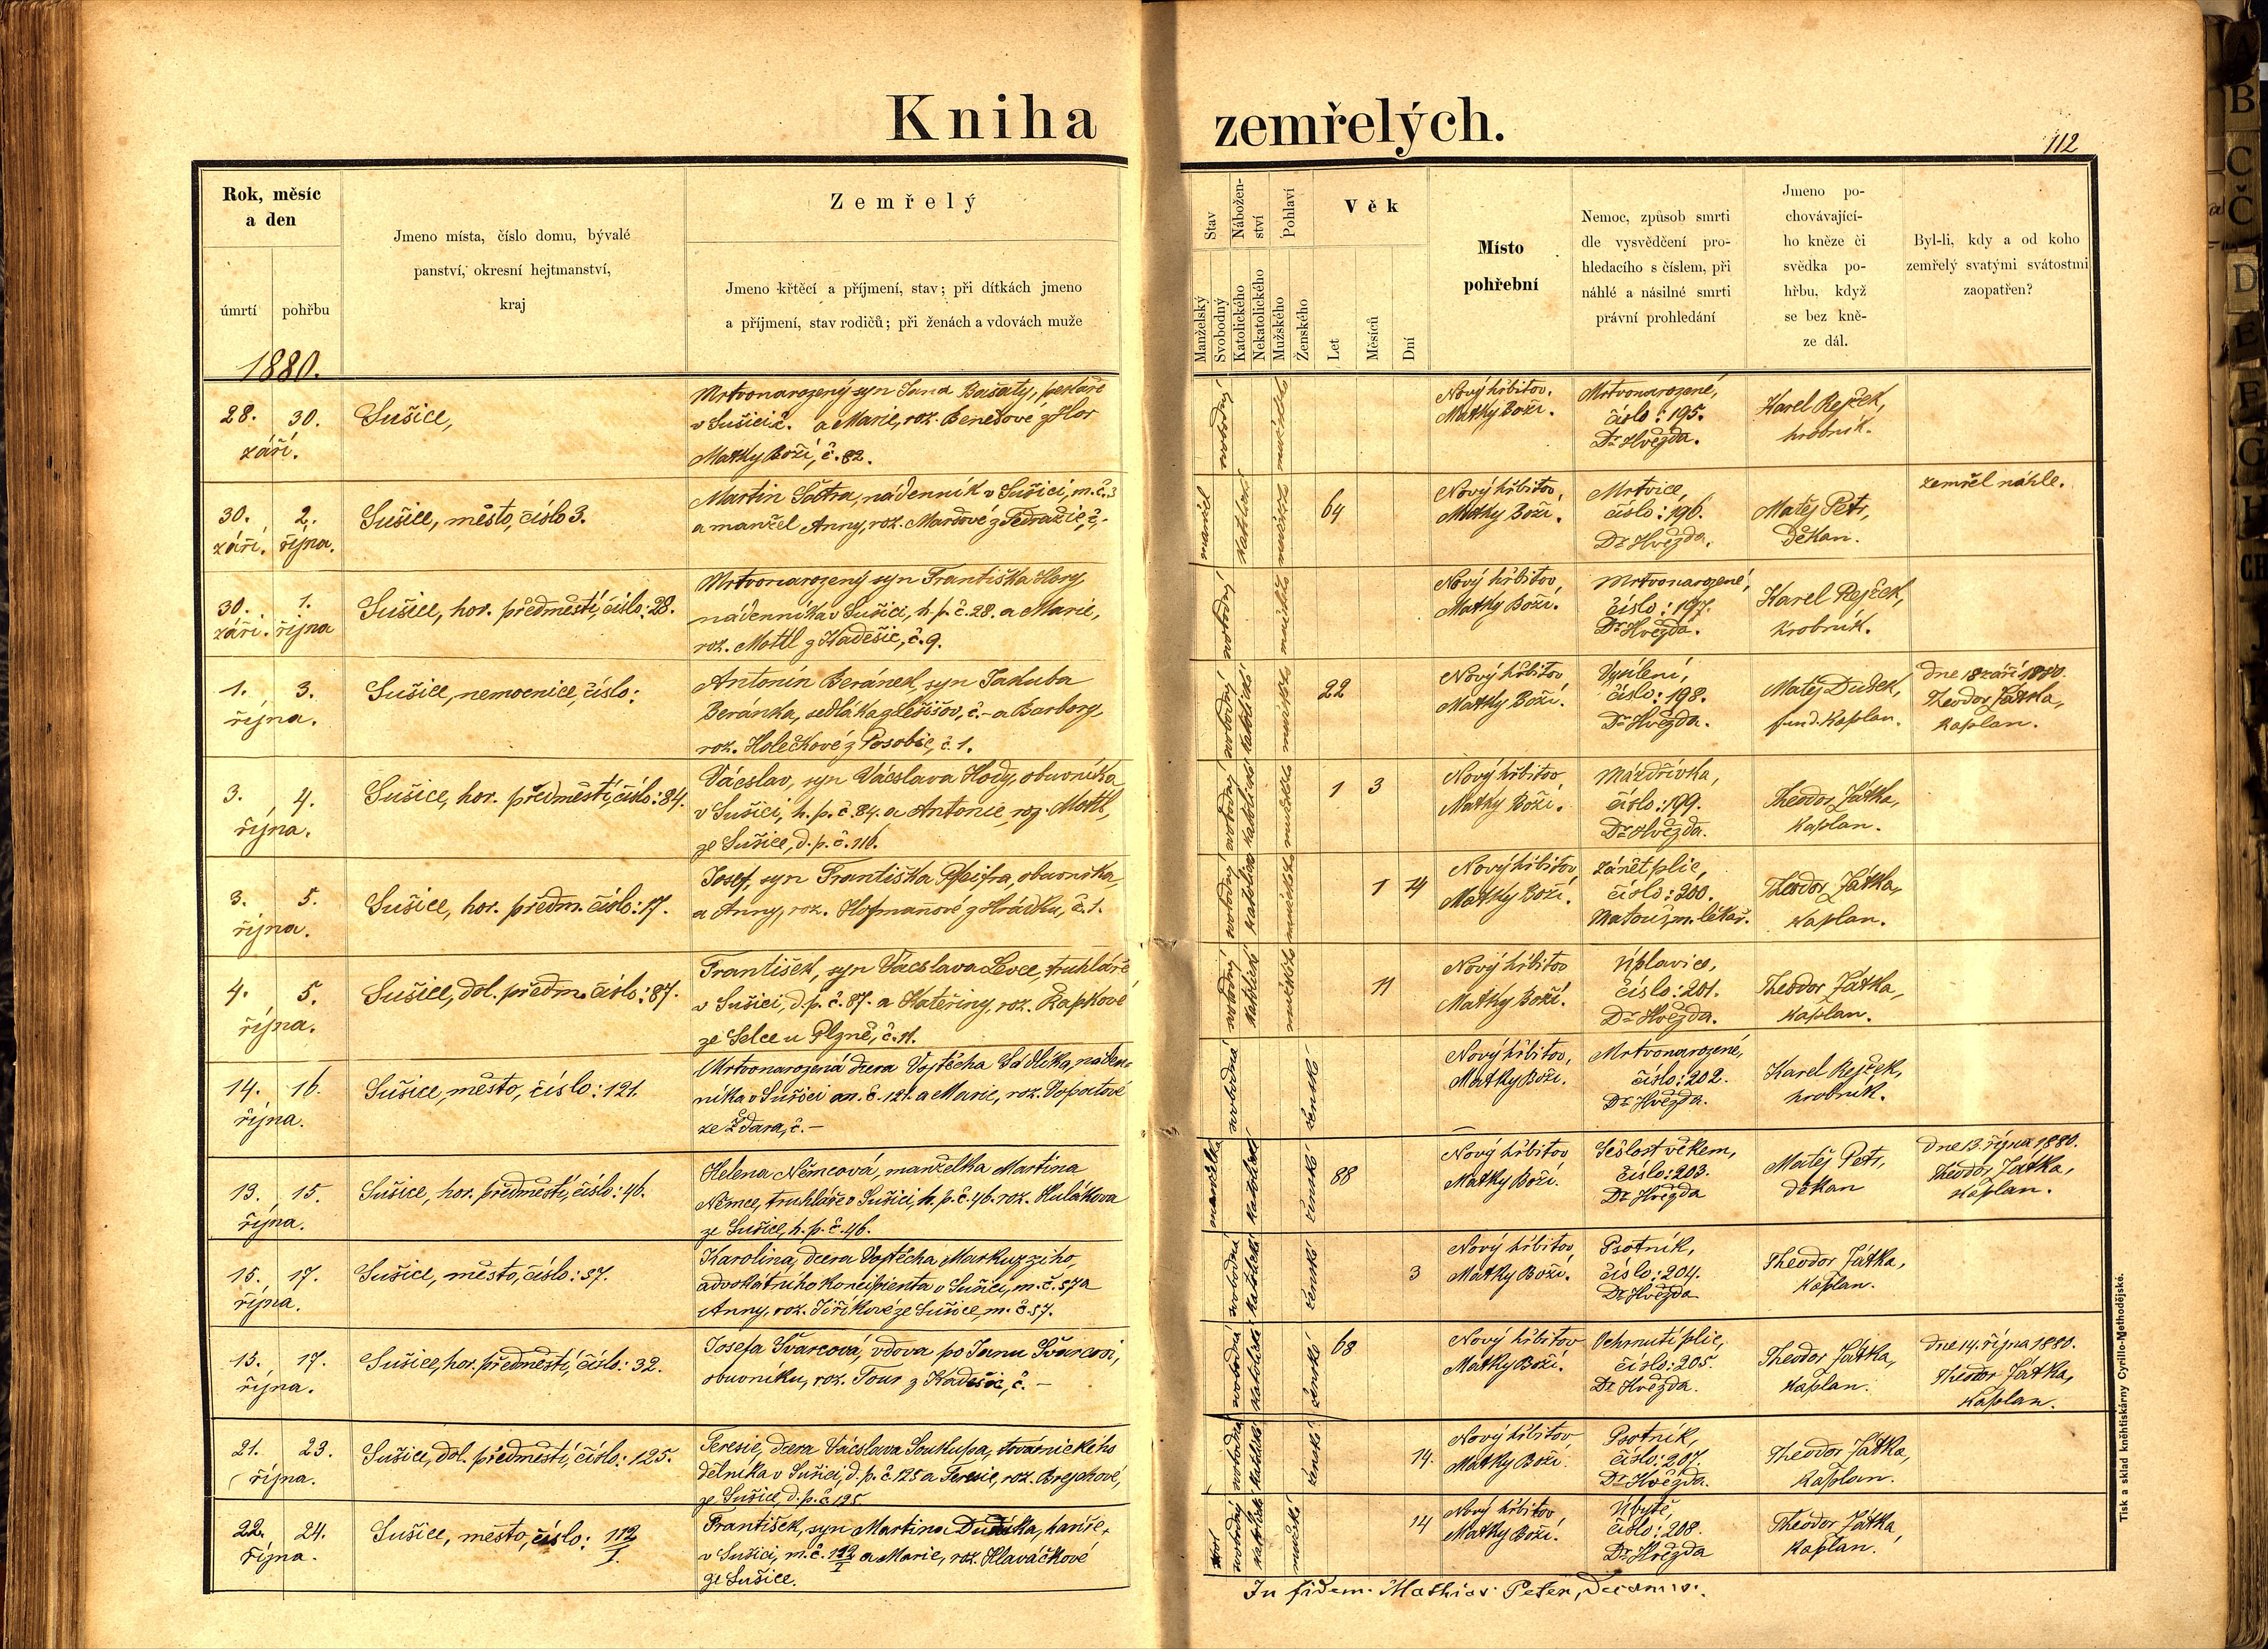 Kniha zemřelých.
112
Rok, měsíc
a den
úmrtí
pohřbu
1880.
Jmeno místa, číslo domu, bývalé
panství, okresní hejtmanství,
kraj
Zemřelý
Jmeno křtěcí a příjmení, stav; při dítkách jmeno
a příjmení, stav rodičů; při ženách a vdovách muže
Stav
Manželský
Svobodný
Nábožen-
ství
Katolického
Nekatolického
Pohlaví
Mužského
Ženského
Věk
Let
Měsíců
Dní
Místo
pohřební
Nemoc, způsob smrti
dle vysvědčení pro-
hledacího s číslem, při
náhlé a násilné smrti
právní prohledání
Jmeno po-
chovávající-
ho kněze či
svědka po-
hřbu, když
se bez kně-
ze dál.
Byl-li, kdy a od koho
zemřelý svatými svátostmi
zaopatřen?
28. 30.
září.
Sušice,
Mrtvonarozený syn Jana Bašaty, pekaře
v Sušici č. a Marie, roz. Benešové z Hor
Matky Boží, č. 82.
svobodný
mužské
Nový hřbitov,
Matky Boží.
Mrtvonarozené,
číslo: 195.
Dr. Hvězda.
Karel Rejček,
hrobník.
30. 2.
září. října.
Sušice, město, číslo 3.
Martin Šatra, nádenník v Sušici, m. č. 3
a manžel Anny, roz. Maršové z Tedražic, č.-
manžel
katolické
mužské
64
Nový hřbitov,
Matky Boží.
Mrtvice,
číslo: 196.
Dr. Hvězda.
Matěj Petr,
děkan.
zemřel náhle.
30. 1.
září. října
Sušice, hor. předměstí, číslo: 28.
Mrtvonarozený syn Františka
nádenníka v Sušici, h. p. č. 28. a Marie,
roz. Mottl z Kadešic, č. 9.
svobodný
mužské
Nový hřbitov,
Matky Boží.
Mrtvonarozené,
číslo: 197.
Dr. Hvězda.
Karel Rejček,
hrobník.
1. 3.
října.
Sušice, nemocnice, číslo:
Antonín Beránek, syn Jakuba
Beránka, sedláka z Lešišov, č.- a Barbory,
roz. Holečkové z Posobic, č. 1.
svobodný
katolické
mužské
22
Nový hřbitov,
Matky Boží.
Vysílení,
číslo: 198.
Dr. Hvězda.
Matěj Dušek,
fund. kaplan.
dne 18 září 1880.
Theodor Játka,
kaplan.
3. 4.
října.
Sušice, hor. předměstí, číslo: 84.
Vácslav, syn Vácslava Hody, obuvníka
v Sušici, h. p. č. 84. a Antonie, roz. Mottl,
ze Sušice, d. p. č. 116.
svobodný
katolické
mužské
1 3
Nový hřbitov
Matky Boží.
Mázdřivka,
číslo: 199.
Dr. Hvězda.
Theodor Játka,
kaplan.
3. 5.
října.
Sušice, hor. předm. číslo: 17.
Josef, syn Františka Pfeifra, obuvníka,
a Anny, roz. Hofmanové z Hrádku, č. 1.
svobodný
katolické
mužské
1 14
Nový hřbitov,
Matky Boží.
Zánět plic,
číslo: 200.
Matouš, m. lékař.
Theodor Játka,
kaplan.
4. 5.
října.
Sušice, dol. předm. číslo: 87.
František, syn Vácslava Levce, truhláře
v Sušici, d. p. č. 87. a Kateřiny, roz. Řapkové
ze Selce u Plzně, č. 11.
svobodný
katolické
mužské
11
Nový hřbitov
Matky Boží.
Úplavice,
číslo: 201.
Dr. Hvězda.
Theodor Játka,
kaplan.
14. 16.
října.
Sušice, město, číslo: 121.
Mrtvonarozená dcera Vojtěcha Sádlíka, náden-
níka v Sušici m. č. 121. a Marie, roz.
ze Ždara, č. —
svobodná
ženské
Nový hřbitov,
Matky Boží.
Mrtvonarozené,
číslo: 202.
Dr. Hvězda.
Karel Rejček,
hrobník.
13. 15.
října.
Sušice, hor. předměstí, číslo: 46.
Helena Němcová, manželka Martina
Němce, truhláře v Sušici, h. p. č. 46. roz. Kulákova
ze Sušice, h. p. č. 46.
manželka
katolické
ženské
88
Nový hřbitov
Matky Boží.
Sešlost věkem,
číslo: 203.
Dr. Hvězda
Matěj Petr,
děkan
dne 13. října 1880.
Theodor Játka,
kaplan.
15. 17.
října.
Sušice, město, číslo: 57.
Karolina, dcera Vojtěcha Markuzziho,
advokátního koncipienta v Sušici, m. č. 57 a
Anny, roz. Jiříkové ze Sušice, m. č. 57.
svobodná
katolické
ženské
3
Nový hřbitov,
Matky Boží.
Psotník,
číslo: 204.
Dr. Hvězda
Theodor Játka,
kaplan.
15. 17.
října.
Sušice, hor. předměstí, číslo: 32.
Josefa Švarcová, vdova po Janu Švarcovi,
obuvníku, roz. Tour z Kadešic, č. —
svobodná
katolické
ženské
68
Nový hřbitov
Matky Boží.
Ochrnutí plic,
číslo: 205.
Dr. Hvězda.
Theodor Játka,
kaplan.
dne 14. října 1880.
Theodor Játka,
kaplan.
21. 23.
října.
Sušice, dol. předměstí, číslo: 125.
Teresie, dcera Vácslava Soukupa, továrnického
dělníka v Sušici, d. p. č. 125 a Teresie, roz. Brejchové,
ze Sušice, d. p. č. 125
svobodná
katolické
ženské
14.
Nový hřbitov
Matky Boží.
Psotník,
číslo: 207.
Dr. Hvězda.
Theodor Játka,
kaplan.
22. 24.
října.
Sušice, město, číslo: 112/I.
František, syn Martina
v Sušici, m. č. 112/I a Marie, roz. Hlaváčkové
ze Sušice.
svobodný
katolické
mužské
14
Nový hřbitov
Matky Boží.
Úbytě,
číslo: 208.
Dr. Hvězda
Theodor Játka,
kaplan.
In fidem: Mathias Peter, Decanus.
Tisk a sklad kněhtiskárny Cyrillo-Methodějské.
B
C
Č
D
E
F
G
H
CH